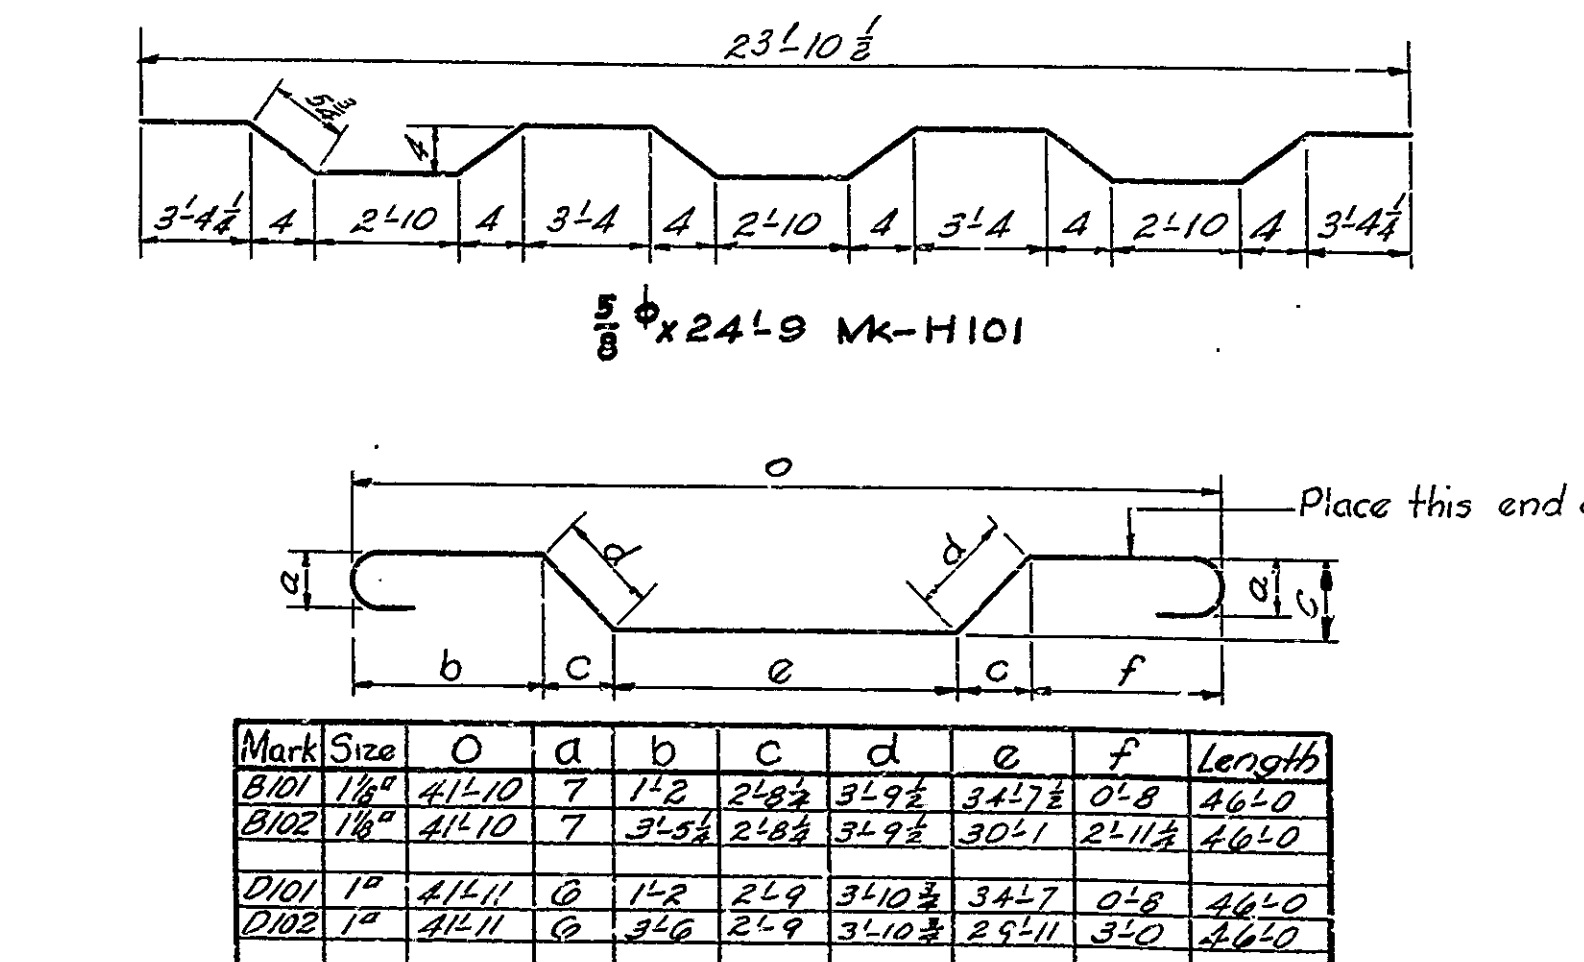 23'-10 1/2
5 3/4
4
3'-4 1/4 4 2'-10 4 3'-4 4 2'-10 4 3'-4 4 2'-10 4 3'-4 1/4
5/8 ϕ x 24'-9 Mk-H101
o
Place this end
d d
a a c
b c e c f
Mark Size O a b c d e f Length
B101 1 1/8" 41'-10 7 1'-2 2'-8 1/4 3'-9 1/2 34'-7 1/2 0'-8 46'-0
B102 1 1/8" 41'-10 7 3'-5 1/4 2'-8 1/4 3'-9 1/2 30'-1 2'-11 1/4 46'-0
D101 1" 41'-11 6 1'-2 2'-9 3'-10 3/4 34'-7 0'-8 46'-0
D102 1" 41'-11 6 3'-6 2'-9 3'-10 3/4 29'-11 3'-0 46'-0